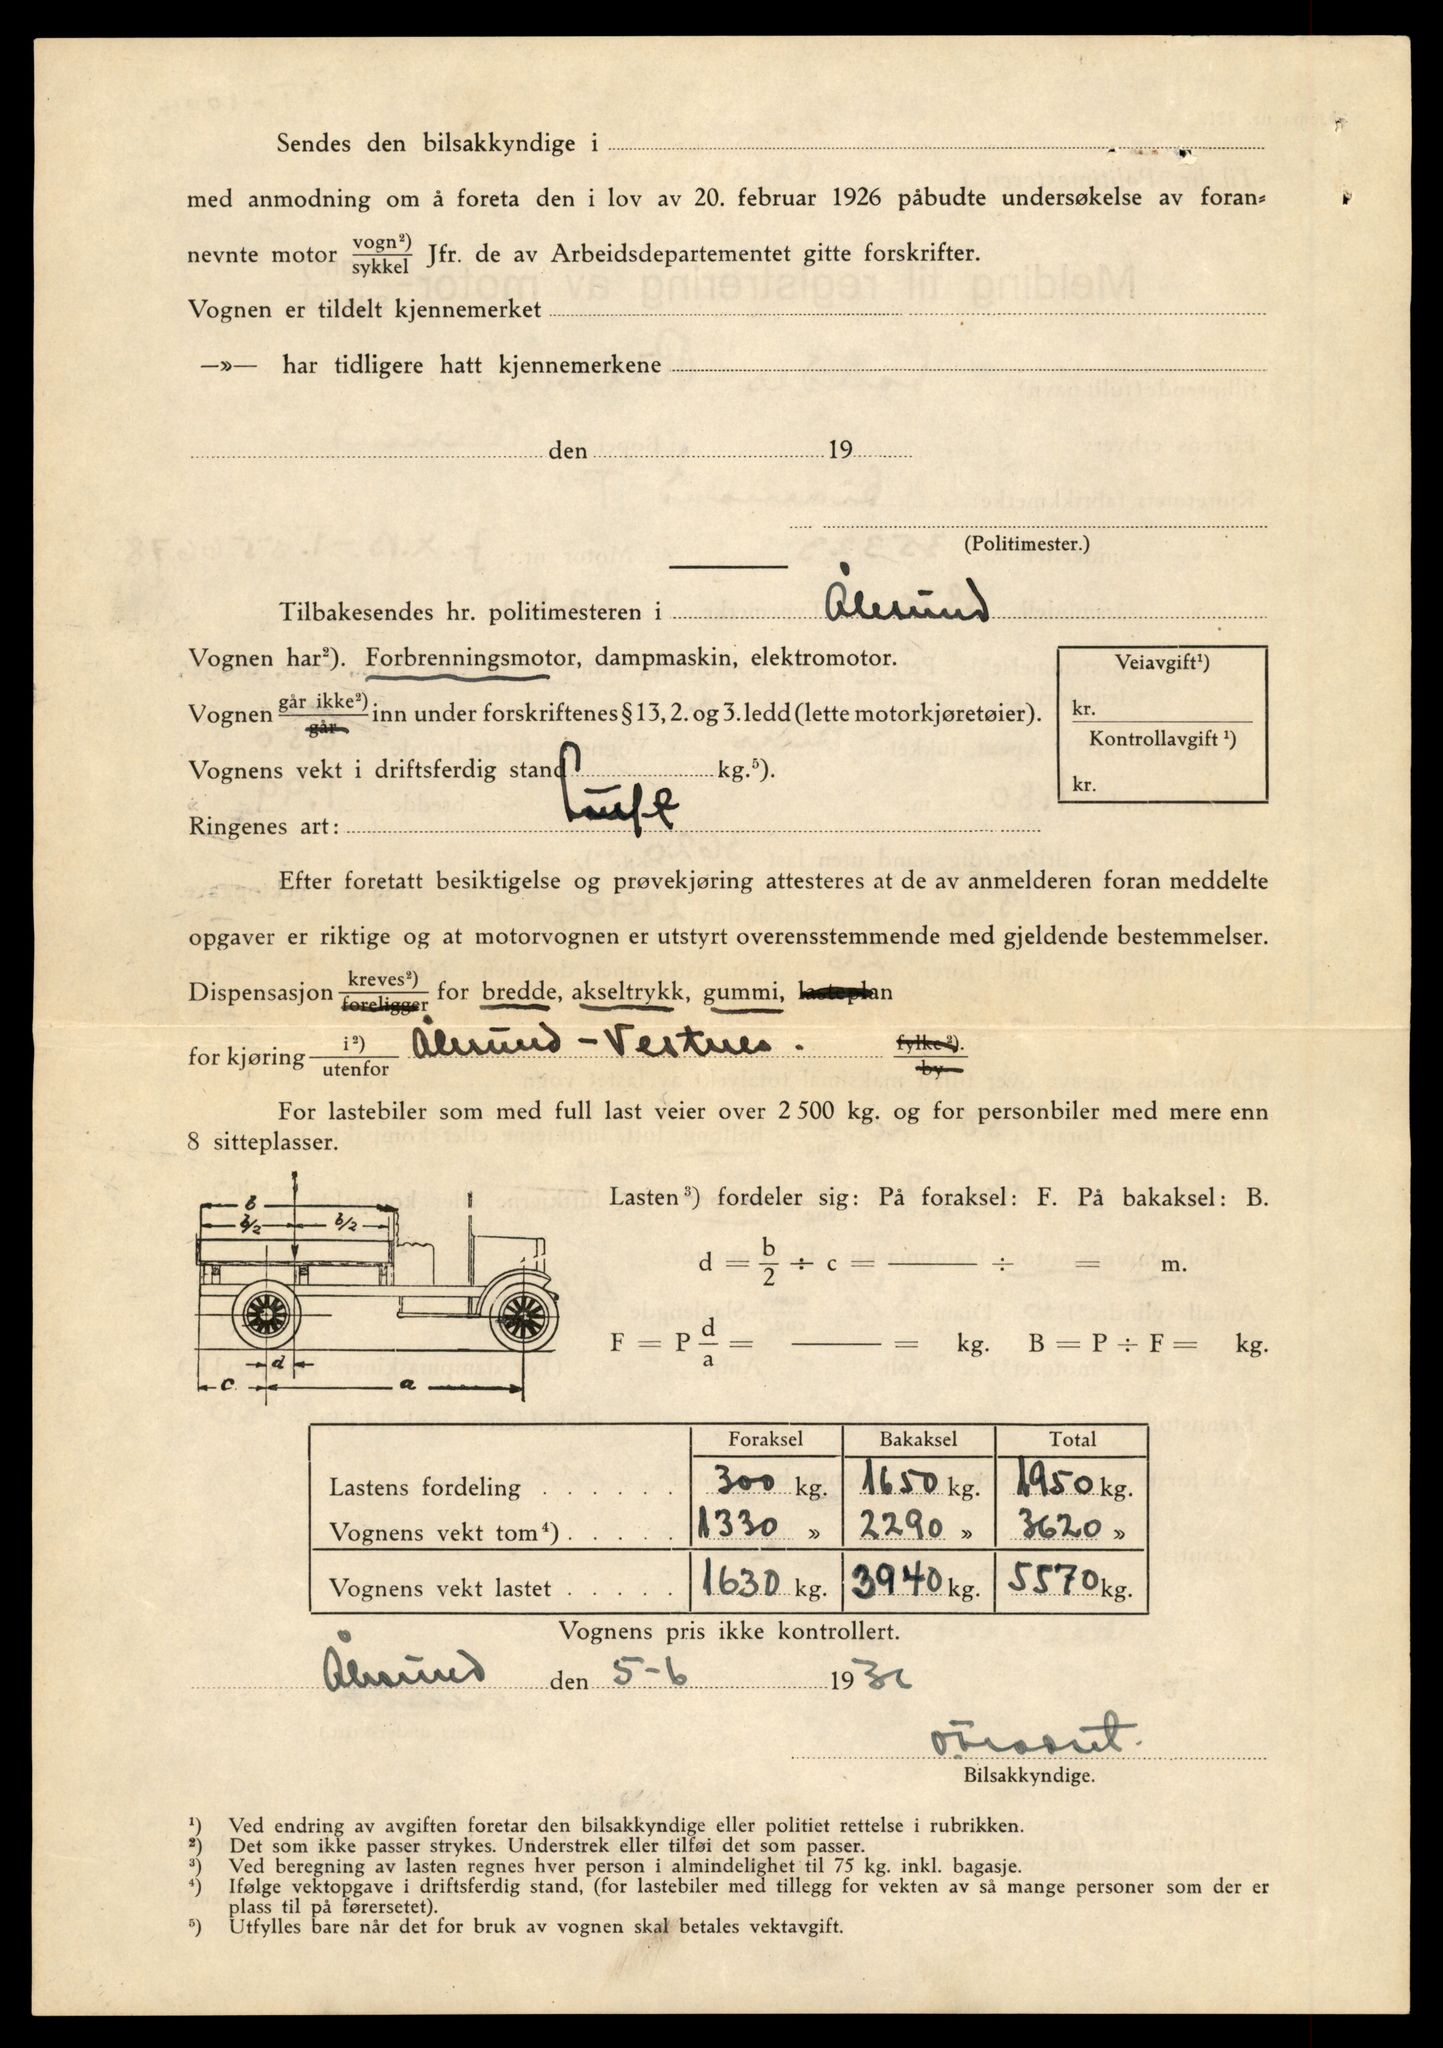 Sendes den bilsakkyndige i
med anmodning om å foreta den i lov av 20. februar 1926 påbudte undersøkelse av foran=
nevnte motor vogn²)/sykkel Jfr. de av Arbeidsdepartementet gitte forskrifter.
Vognen er tildelt kjennemerket
—»— har tidligere hatt kjennemerkene
den 19
(Politimester.)
Tilbakesendes hr. politimesteren i Ålesund
Vognen har²). Forbrenningsmotor, dampmaskin, elektromotor.
Veiavgift¹)
Vognen går ikke²)/går inn under forskriftenes § 13, 2. og 3. ledd (lette motorkjøretøier).
kr.
Kontrollavgift ¹)
Vognens vekt i driftsferdig stand kg.⁵).
kr.
Ringenes art: Luft
Efter foretatt besiktigelse og prøvekjøring attesteres at de av anmelderen foran meddelte
opgaver er riktige og at motorvognen er utstyrt overensstemmende med gjeldende bestemmelser.
Dispensasjon kreves²)/foreligger for bredde, akseltrykk, gummi, lasteplan
for kjøring i²)/utenfor Ålesund – Vestnes. fylke²)./by
For lastebiler som med full last veier over 2 500 kg. og for personbiler med mere enn
8 sitteplasser.
b
b/2 b/2
d
c a
Lasten³) fordeler sig: På foraksel: F. På bakaksel: B.
d = b/2 ÷ c = ——— ÷ = m.
F = P d/a = ——— = kg. B = P ÷ F = kg.
Foraksel Bakaksel Total
Lastens fordeling . . . . . . 300 kg. 1650 kg. 1950 kg.
Vognens vekt tom⁴) . . . . . 1330 » 2290 » 3620 »
Vognens vekt lastet . . . . . 1630 kg. 3940 kg. 5570 kg.
Vognens pris ikke kontrollert.
Ålesund den 5-6 193
Bilsakkyndige.
¹) Ved endring av avgiften foretar den bilsakkyndige eller politiet rettelse i rubrikken.
²) Det som ikke passer strykes. Understrek eller tilføi det som passer.
³) Ved beregning av lasten regnes hver person i almindelighet til 75 kg. inkl. bagasje.
⁴) Ifølge vektopgave i driftsferdig stand, (for lastebiler med tillegg for vekten av så mange personer som der er
plass til på førersetet).
⁵) Utfylles bare når det for bruk av vognen skal betales vektavgift.